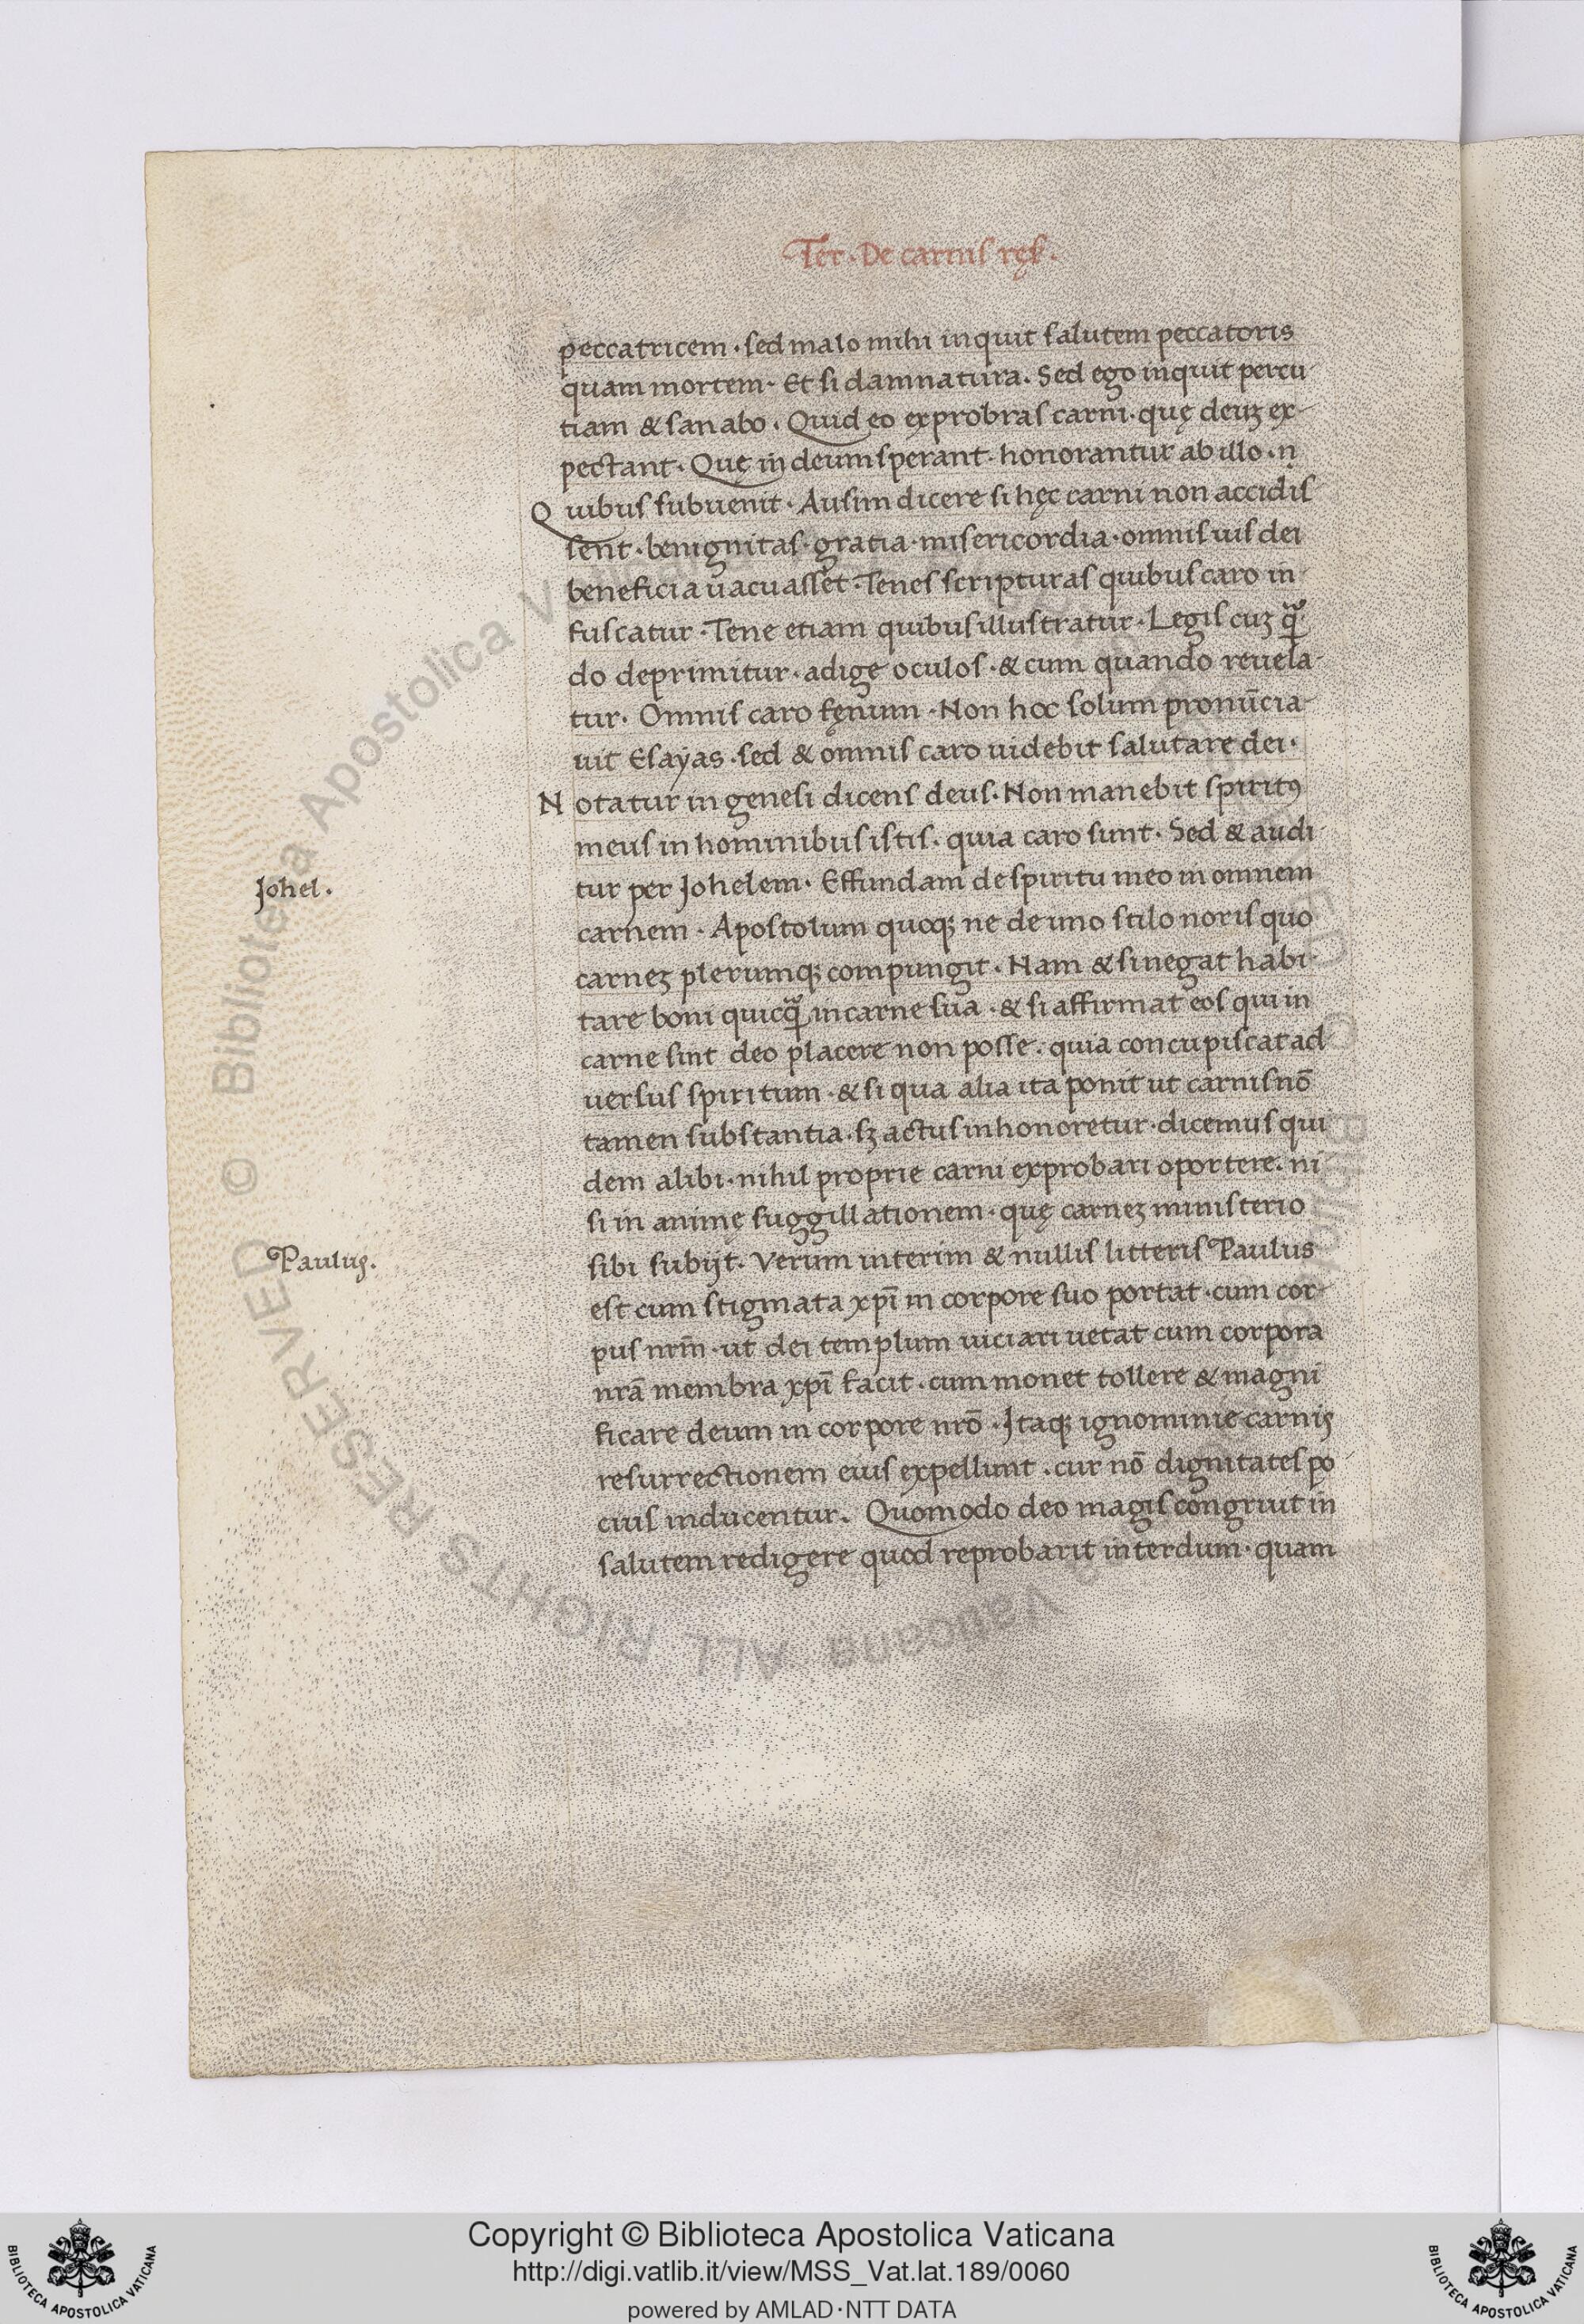 Ter · De carnis ręſ ·
peccatricem · sed malo mihi inquit salutem peccatoris
quam mortem · Et si damnatura · Sed ego inquit percu
tiam & sanabo · Quid eo exprobras carni · quę deuʒ ex-
pectant · Quę in deum sperant · honorantur ab illo · n
Quibus subuenit · Ausim dicere si hęc carni non accidis
sent · benignitas · gratia · misericordia · omnis uis dei
beneficia uacuasset · Tenes scripturas quibus caro in-
fuscatur · Tene etiam quibus illustratur · Legis cuʒ qᷓ
do deprimitur · adige oculos · & cum quando reuela-
tur · Omnis caro fęnum · Non hoc solum pronūcia-
uit Esayas · sed & omnis caro uidebit salutare dei ·
Notatur in genesi dicens deus · Non manebit spiritꝰ
meus in hominibus istis · quia caro sunt · Sed & audi-
tur per Johelem · Effundam de spiritu meo in omnem
Johel ·
carnem · Apostolum quoqꝫ ne de uno stilo noris quo
carneʒ plerumqꝫ compungit · Nam & si negat habi-
tare boni quicqᷓ in carne sua · & si affirmat eos qui in
carne sint deo placere non posse · quia concupiscat ad
uersus spiritum · & si qua alia ita ponit ut carnis nō
tamen substantia · sꝫ actus inhonoretur · dicemus qui
dem alibi · nihil proprie carni exprobari oportere · ni
si in animę suggillationem · quę carneʒ ministerio
sibi subijt · Verum interim & nullis litteris Paulus
Paulus ·
est cum stigmata xp̄i in corpore suo portat · cum cor-
pus nrm̄ · ut dei templum uiciari uetat cum corpora
nrā membra xp̄i facit · cum monet tollere & magni
ficare deum in corpore nrō · Itaqꝫ ignominie carnis
resurrectionem eius expellunt · cur nō dignitates po-
cius inducentur · Quomodo deo magis congruit in
salutem redigere quod reprobarit interdum · quam
© Biblioteca Apostolica Vaticana ALL RIGHTS RESERVED
Copyright © Biblioteca Apostolica Vaticana
http://digi.vatlib.it/view/MSS_Vat.lat.189/0060
powered by AMLAD·NTT DATA
BIBLIOTECA APOSTOLICA VATICANA
BIBLIOTECA APOSTOLICA VATICANA